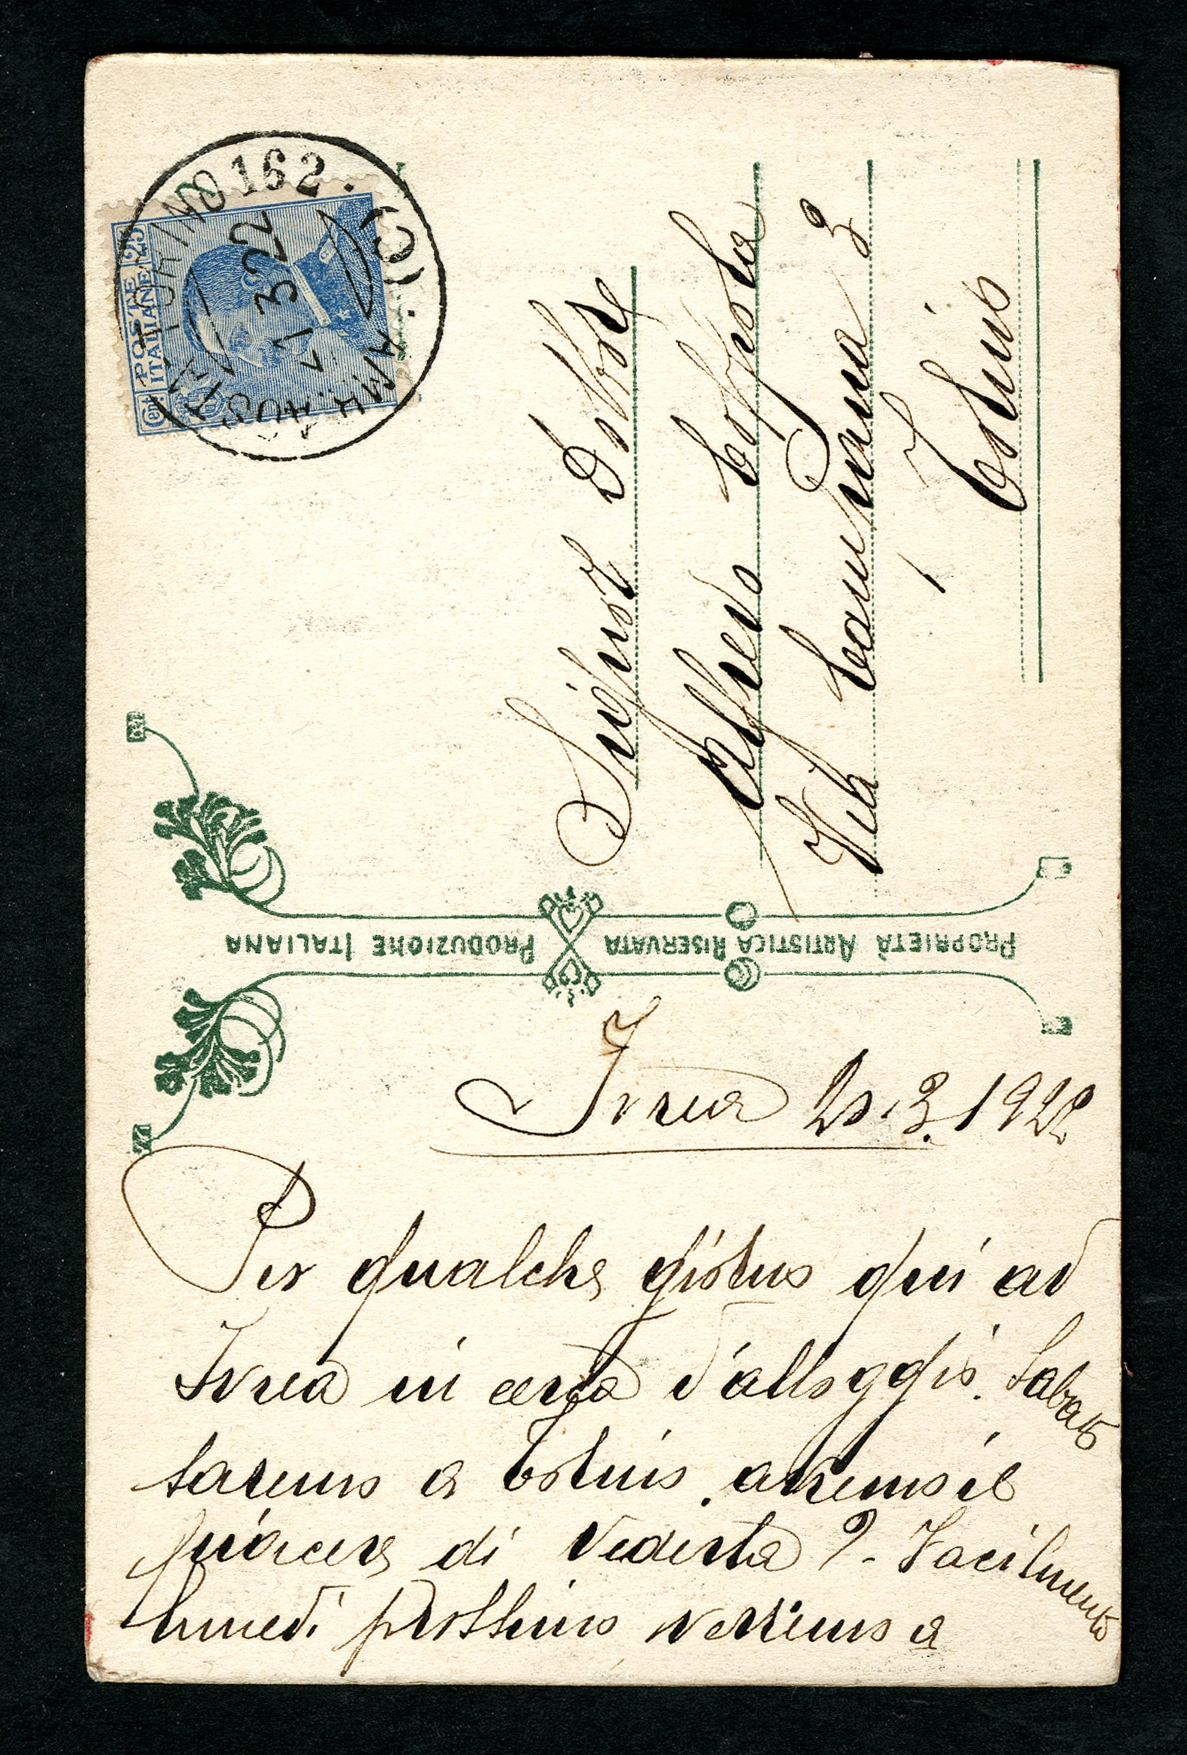 POSTE
ITALIANE
Cent. 25
TORINO 162
21 3 22
Signor Dottor
Alfredo
Via Campana 3
Torino
PROPRIETÀ ARTISTICA RISERVATA
PRODUZIONE ITALIANA
Ivrea 20.3.1922
Per qualche giorno qui ad
Ivrea in cerca d'alloggio. Sabato
saremo a Torino. avremo il
piacere di vederla? - Facilmente
lunedi prossimo verremo a